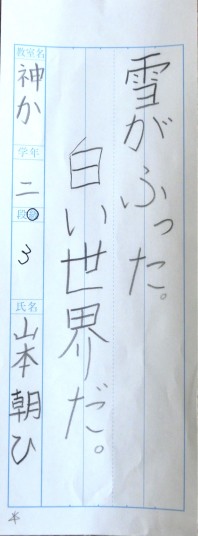 雪がふった。
白い世界だ。
教室名
神か
学年
二
段級
3
氏名
山本朝ひ